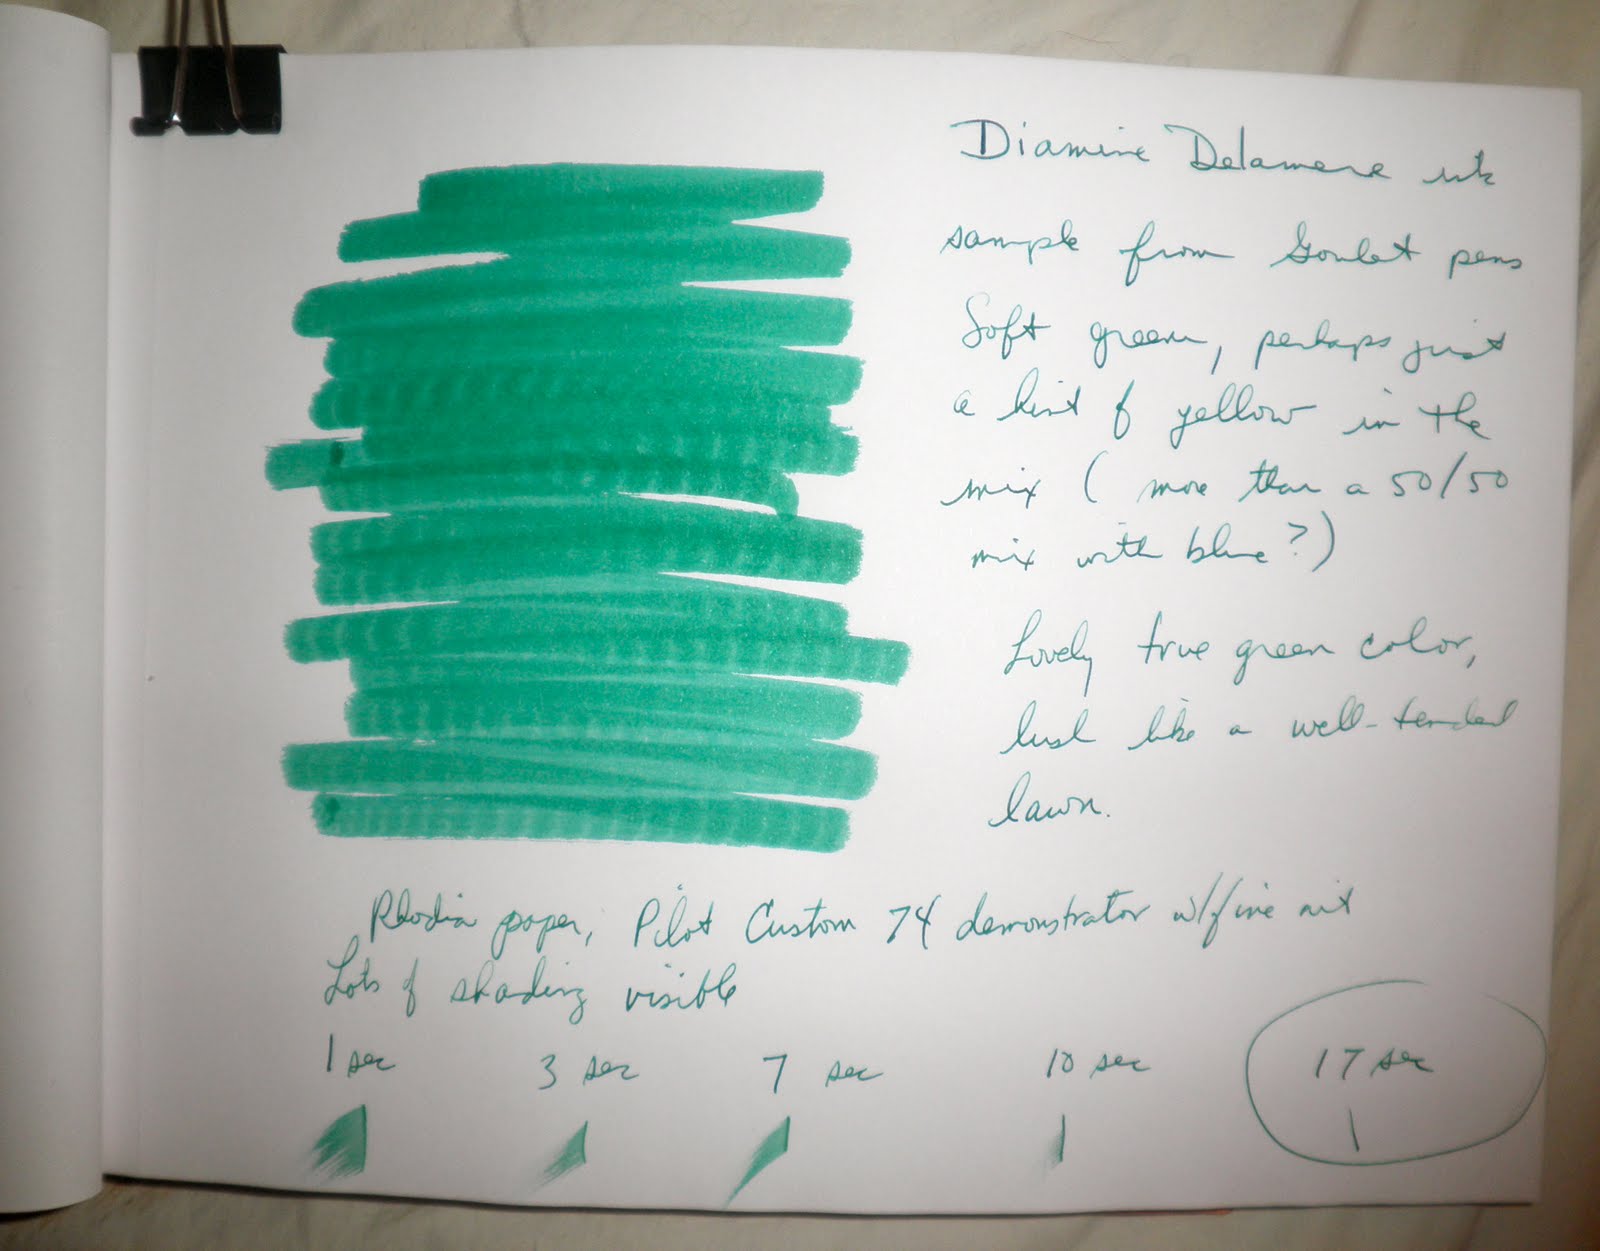 Diamine Delamere ink
sample from Goulet pens
Soft green, perhaps just
a hint of yellow in the
mix (more than a 50/50
mix with blue?)
Lovely true green color,
lush like a well-tended
lawn.
Rhodia paper, Pilot Custom 74 demonstrator w/fine nib
Lots of shading visible
1 sec 3 sec 7 sec 10 sec 17 sec